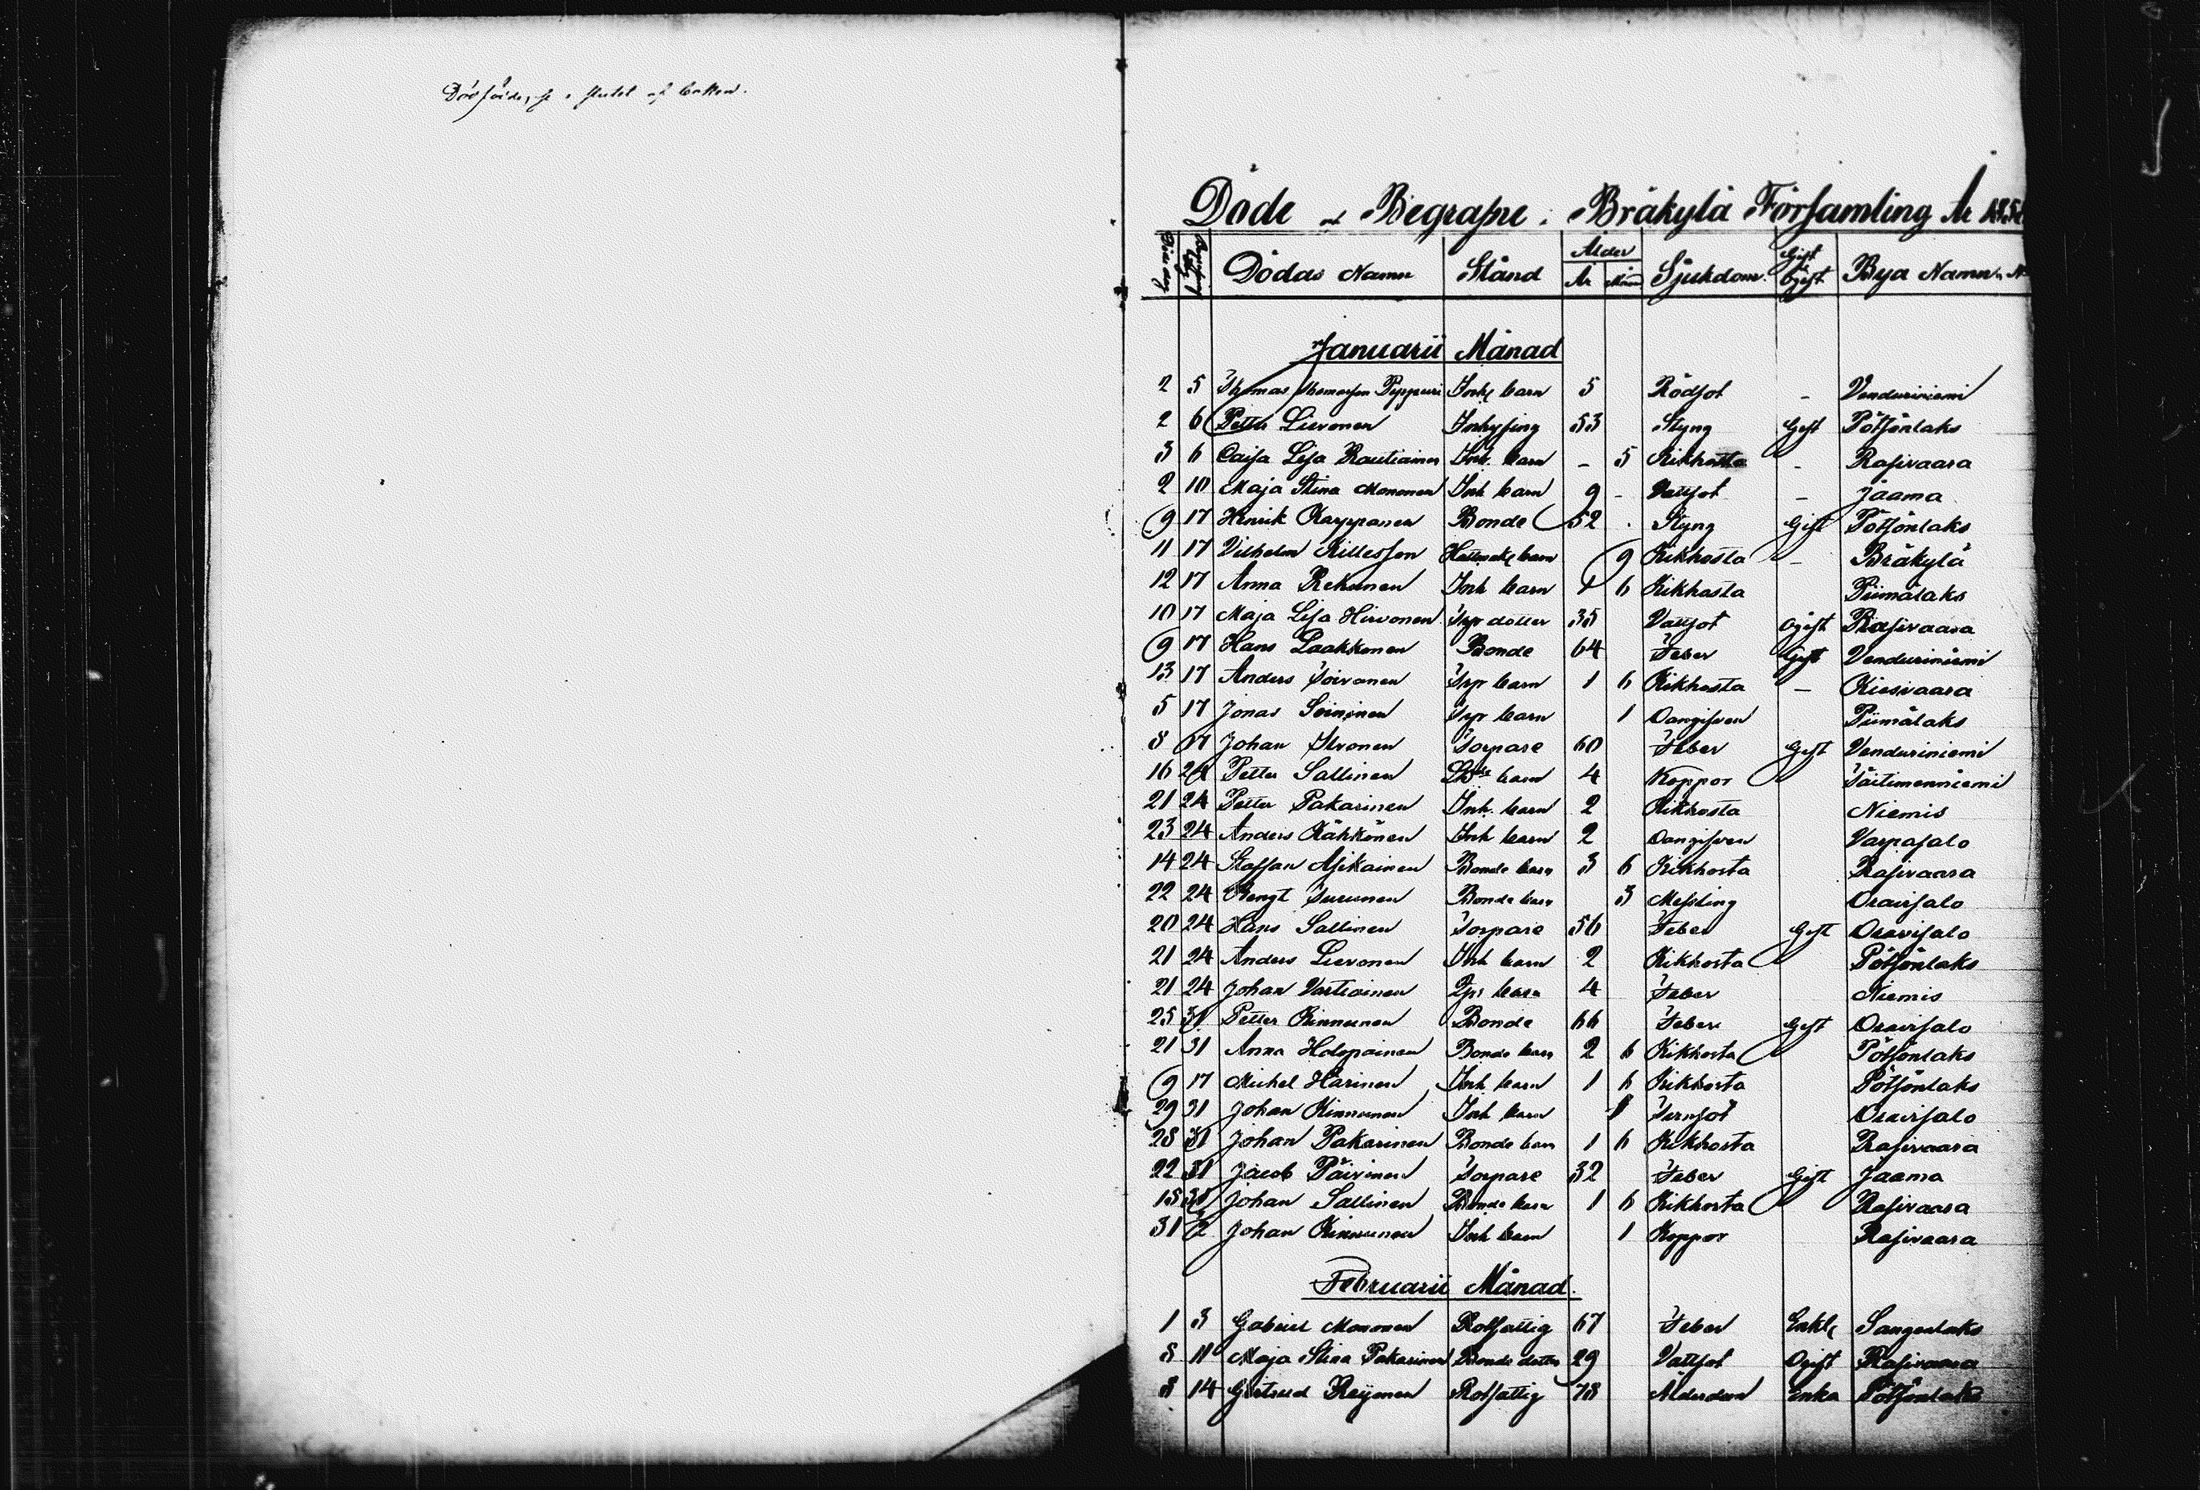 Dödföde, se i slutet af boken.
Döde et Begrafne i Bräkylä Församling År 185
Döde dag Begrafnings dag Dödas Namn Stånd Ålder År Mån Sjukdom Gift Ogift Bya Namn
Januarii Månad
2 5 Thomas Thomasson Pippuri Inh. barn 5 Rödsot - Venduriniemi
2 6 Petter Lievonen Inhysing 53 Styng Gift Pötsönlaks
3 6 Caisa Lisa Rautiainen Inh. barn - 5 Kikhosta - Rasivaara
2 10 Maja Stina Mononen Inh barn 9 - Vattsot - Jaama
9 17 Henrik Karppanen Bonde 52 . Styng Gift Pötsönlaks
11 17 Vilhelm Killesson barn 9 Kikhosta - Bräkylä
12 17 Anna Rekonen Inh barn 1 6 Kikhosta Piimälaks
10 17 Maja Lisa Hirvonen Trp dotter 35 Vattsot Ogift Rasivaara
9 17 Hans Laakkonen Bonde 64 Feber Gift Venduriniemi
13 17 Anders Toivonen Trp barn 1 6 Kikhosta - Kiesvaara
5 17 Jonas Soininen Trp barn 1 Oangifven Piimälaks
8 17 Johan Ilvonen Torpare 60 Feber Gift Venduriniemi
16 24 Petter Sallinen barn 4 Koppor Täitimenniemi
21 24 Petter Pakarinen Inh. barn 2 Kikhosta Niemis
23 24 Anders Kähkönen Inh barn 2 Oangifven Varpasalo
14 24 Staffan Asikainen Bonde barn 3 6 Kikhosta Rasivaara
22 24 Bengt Turunen Bonde barn 3 Messling Oravisalo
20 24 Hans Sallinen Torpare 56 Feber Gift Oravisalo
21 24 Anders Lievonen Inh barn 2 Kikhosta Pötsönlaks
21 24 Johan Vartiainen Trp barn 4 Feber Niemis
25 31 Petter Kinnunen Bonde 66 Feber Gift Oravisalo
21 31 Anna Holopainen Bonde barn 2 6 Kikhosta Pötsönlaks
9 17 Michel Harinen Inh barn 1 6 Kikhosta Pötsönlaks
29 31 Johan Kinnunen Inh barn 1 Oravisalo
28 31 Johan Pakarinen Bonde barn 1 6 Kikhosta Rasivaara
22 31 Jacob Päivinen Torpare 32 Feber Gift Jaama
18 31 Johan Sallinen Bonde barn 1 6 Kikhosta Rasivaara
31 2 Johan Kinnunen Inh barn 1 Koppor Rasivaara
Februarii Månad.
1 3 Gabriel Mononen Rotfattig 67 Feber Enkl. Sangenlaks
8 11 Maja Stina Pakarinen Bonde dotter 29 Vattsot Ogift Rasivaara
8 14 Gertrud Reijonen Rotfattig 78 Ålderdom Enka Pötsönlaks